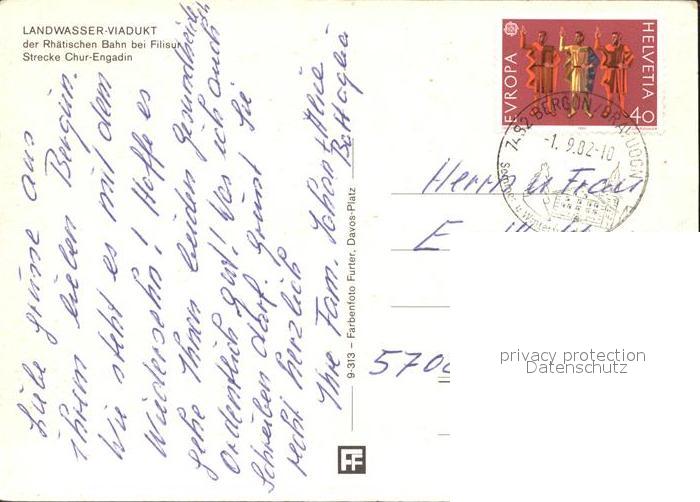 LANDWASSER-VIADUKT
der Rhätischen Bahn bei Filisur
Strecke Chur-Engadin
Liebe Grüsse aus
Ihrem lieben Bergün.
Wie steht es mit dem
Wiedersehn! Hoffe es
gehe Ihnen beiden Gesundheitl.
Ordentlich gut! Was ich auch
Schreiben darf. Grüsst Sie
recht herzlich
Ihre Fam.
9-313 – Farbenfoto Furter, Davos-Platz
FF
EUROPA
HELVETIA
40
7492 BERGÜN/BRAVUOGN
-1. 9.82-10
Herrn u Frau
E
570
privacy protection
Datenschutz